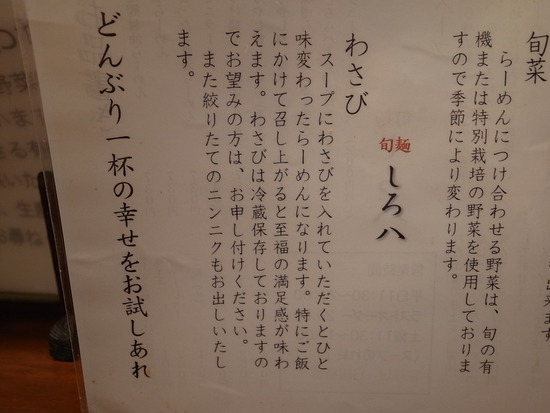 旬菜
らーめんにつけ合わせる野菜は、旬の有
機または特別栽培の野菜を使用しておりま
すので季節により変わります。
旬麺 しろ八
わさび
スープにわさびを入れていただくとひと
味変わったらーめんになります。特にご飯
にかけて召し上がると至福の満足感が味わ
えます。わさびは冷蔵保存しておりますの
でお望みの方は、お申し付けください。
また絞りたてのニンニクもお出しいたし
ます。
どんぶり一杯の幸せをお試しあれ